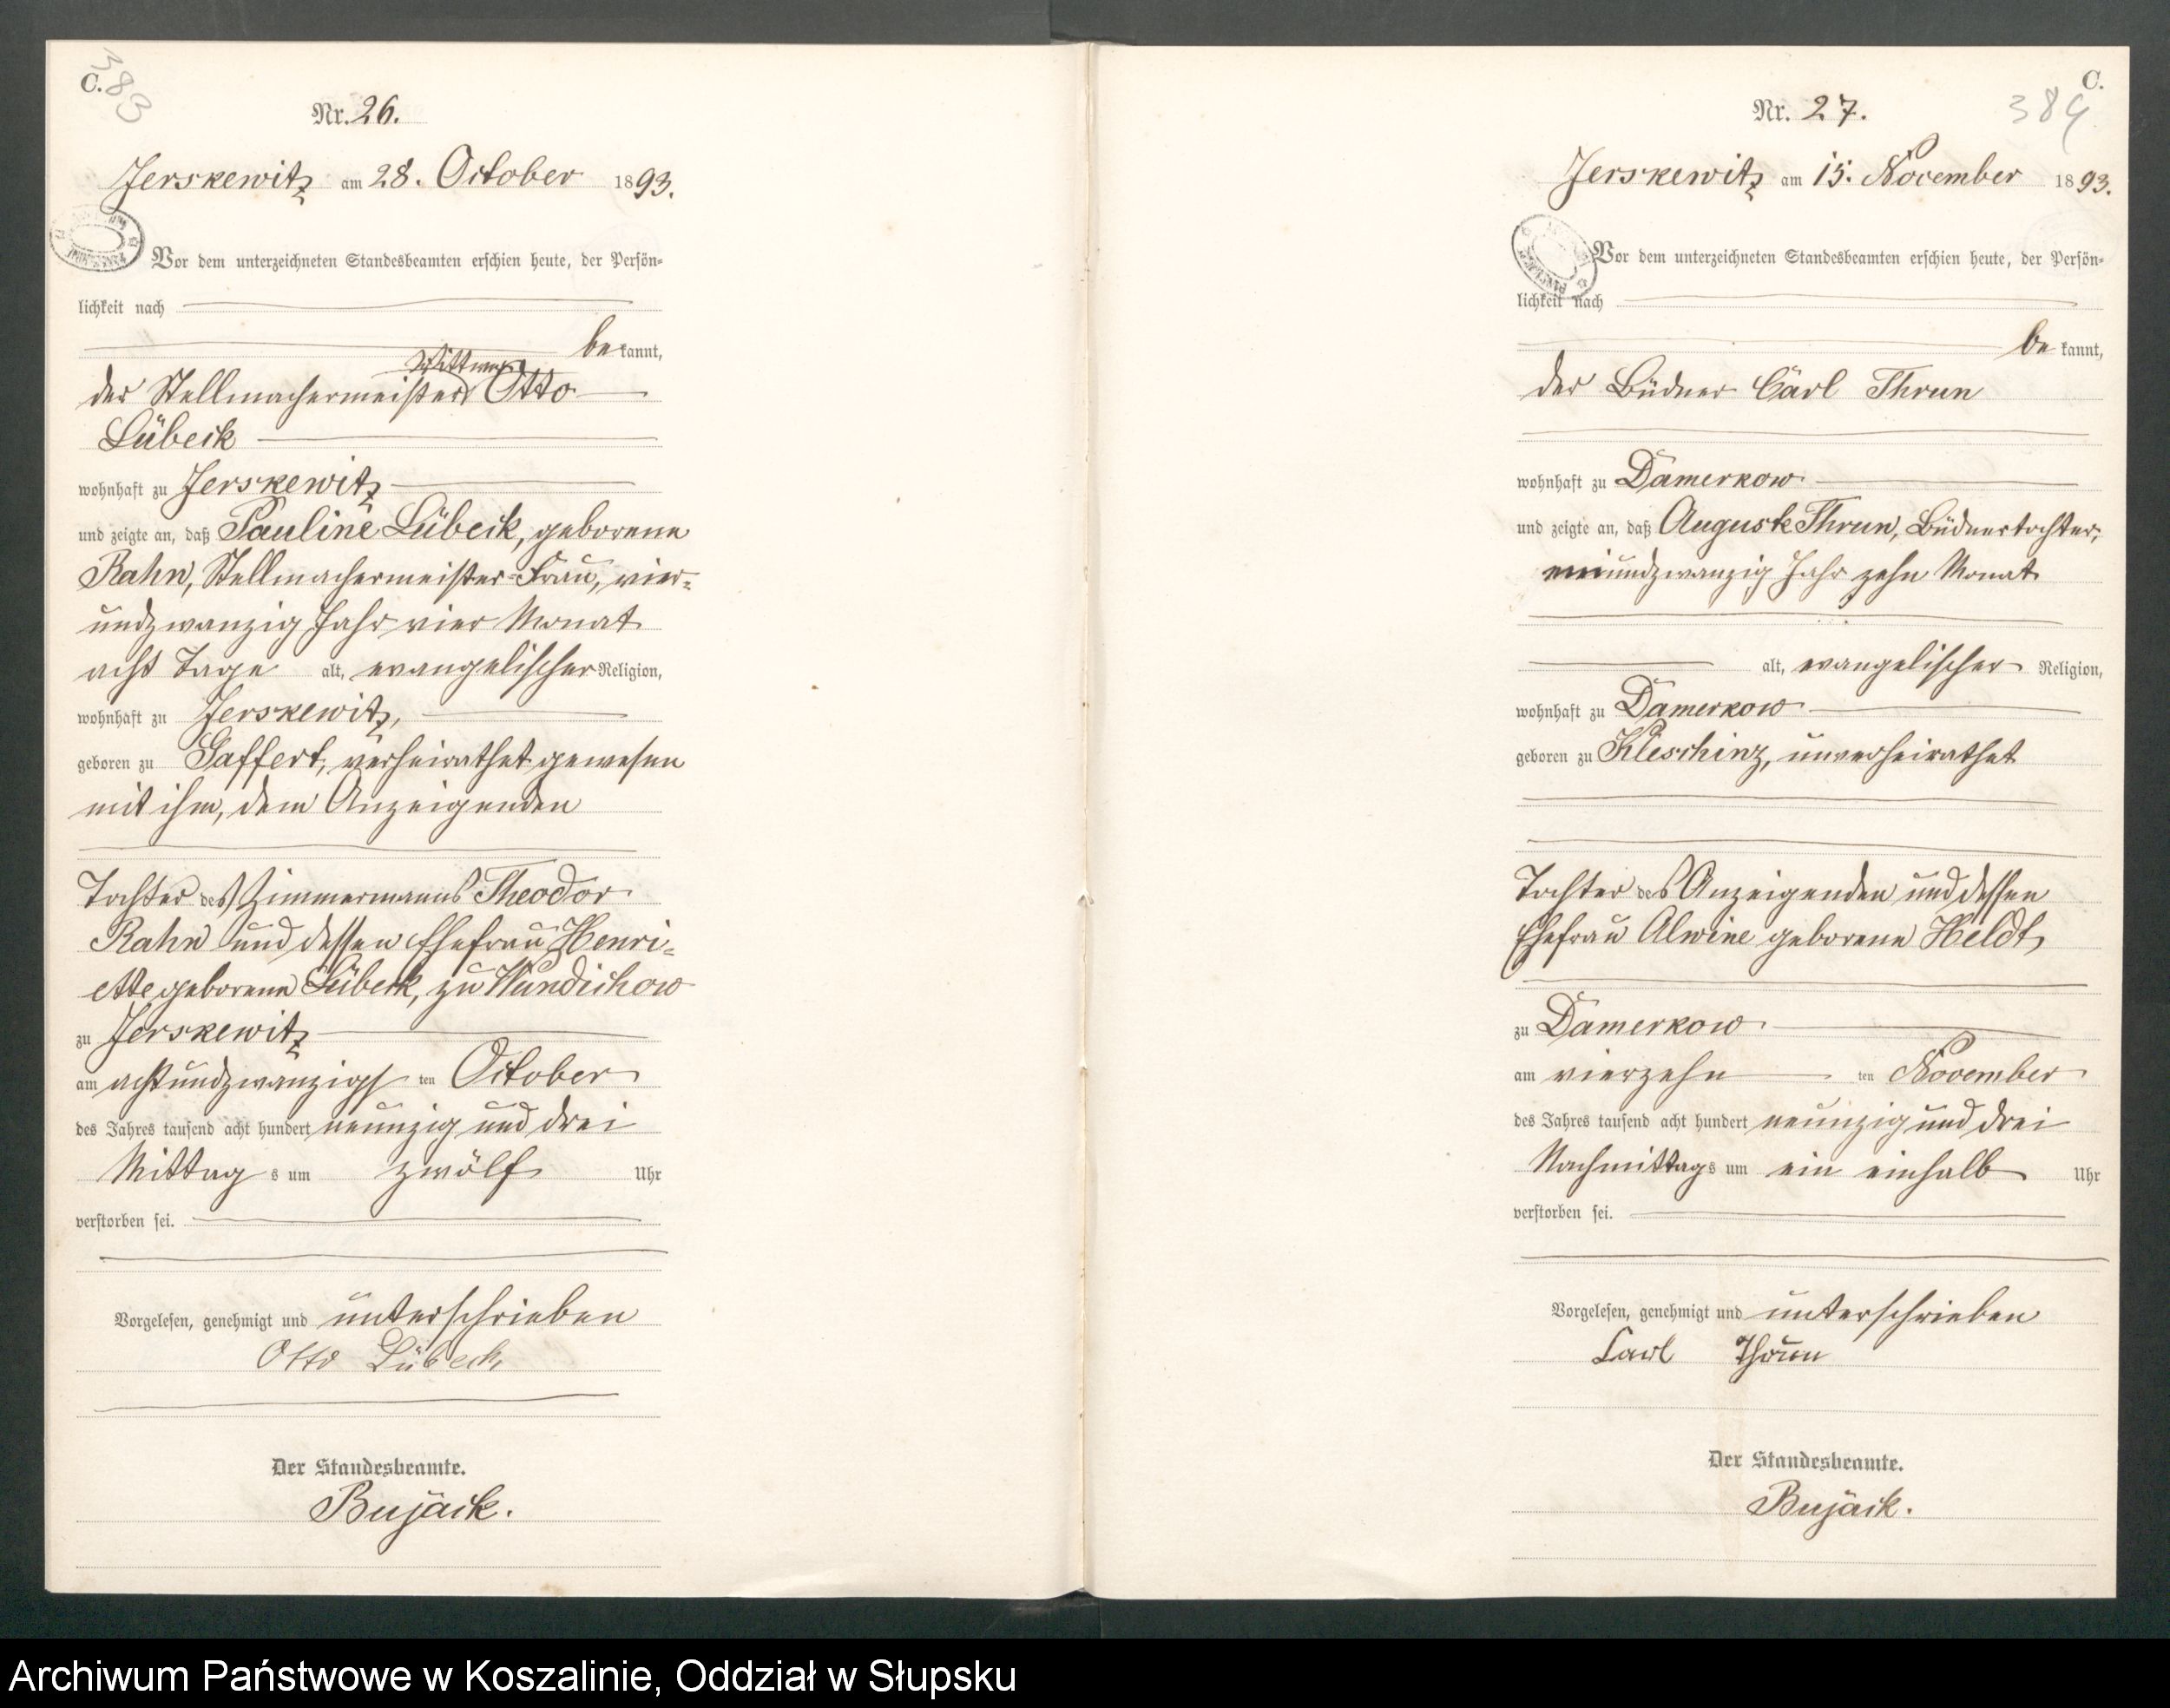 C.
383
Nr. 26.
Jerskewitz am 28. October 1893.
Vor dem unterzeichneten Standesbeamten erschien heute, der Persön-
lichkeit nach
bekannt,
Wittwer
der Stellmachermeister Otto
Lübeck
wohnhaft zu Jerskewitz
und zeigte an, daß Pauline Lübeck, geborene
Rahn, Stellmachermeister-Frau, vier-
undzwanzig Jahr vier Monat
acht Tage alt, evangelischer Religion,
wohnhaft zu Jerskewitz,
geboren zu Gaffert, verheirathet gewesen
mit ihm, dem Anzeigenden
Tochter des Zimmermanns Theodor
Rahn und dessen Ehefrau Henri-
ette geborene Lübeck, zu Wundichow
zu Jerskewitz
am achtundzwanzigsten October
des Jahres tausend acht hundert neunzig und drei
Mittags um zwölf Uhr
verstorben sei.
Vorgelesen, genehmigt und unterschrieben
Otto Lübeck
Der Standesbeamte.
Bujack.
C.
384
Nr. 27.
Jerskewitz am 15. November 1893.
Vor dem unterzeichneten Standesbeamten erschien heute, der Persön-
lichkeit nach
bekannt,
der Büdner Carl Thrun
wohnhaft zu Damerkow
und zeigte an, daß Auguste Thrun, Büdnertochter,
undzwanzig Jahr zehn Monat
alt, evangelischer Religion,
wohnhaft zu Damerkow
geboren zu Kleschinz, unverheirathet
Tochter des Anzeigenden und dessen
Ehefrau Alwine geborene Heldt,
zu Damerkow
am vierzehnten November
des Jahres tausend acht hundert neunzig und drei
Nachmittags um ein einhalb Uhr
verstorben sei.
Vorgelesen, genehmigt und unterschrieben
Carl Thrun
Der Standesbeamte.
Bujack.
Archiwum Państwowe w Koszalinie, Oddział w Słupsku